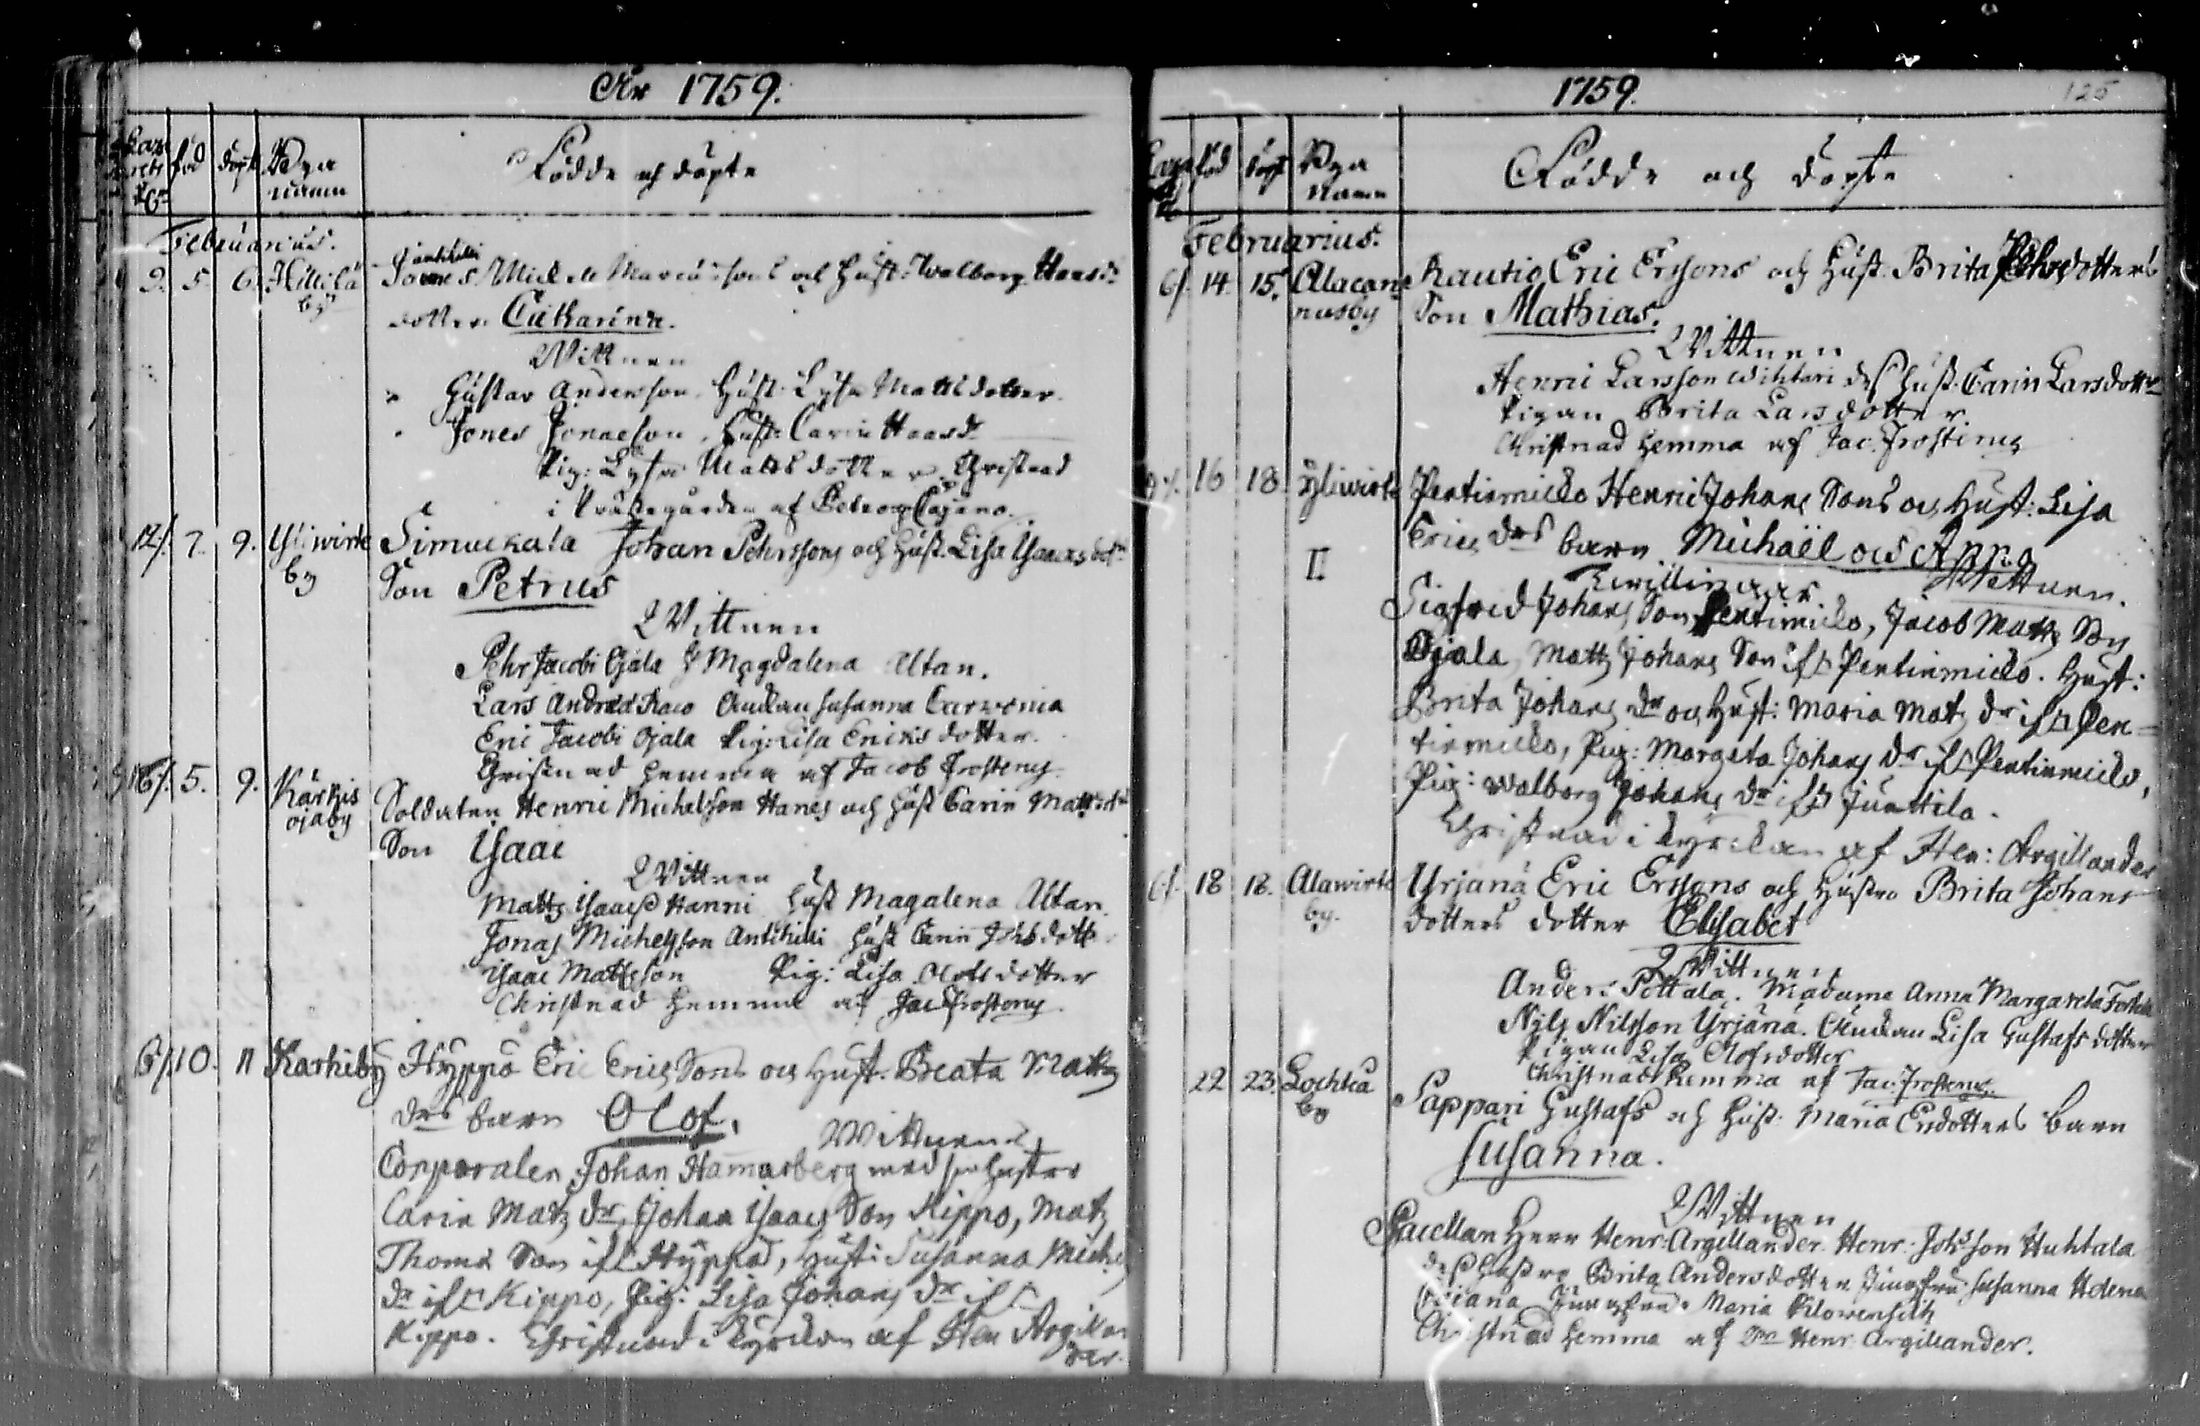 År 1759.
född döpt Byanamn Födde och döpte
Februarius.
9. 5 6. Hillilä by Michel Marcussons och Hust: Walborg Hansdr
dotter Catharina.
Wittnen
Gustav Andersson. Hust. Lisa Mattsdotter.
Jonas Jonaeson, Hust. Carin Hansdr
Pig: Lisa Mattsdotter. Christnad
i Prästegården af Petro Cajano.
12/. 7. 9. Yliwirre by Simuckala Johan Pehrssons och Hust. Lisa Ysaacsdotr
Son Petrus
Wittnen
Pehr Jacobi Ojala H Magdalena Utan.
Lars Andreæ Raio Änckan Susanna
Eric Jacobi Ojala Pig: Lisa Ericksdotter.
Christnad hemma af Jacob Frosterus.
16/. 5. 9. Kärkis ojaby Soldaten Henric Michelsson Hanes och Hust Carin Mattsdr
Son Ysaac
Wittnen
Matts Ysaacss Hanni Hust Magalena Utan.
Jonas Michelsson Anttikulli Hust Carin Johsdottr
Ysaac Matsson Pig: Lisa Olofsdotter
Christnad hemma af Jac Frosterus.
6/. 10. 11 Karhiby Hyppä Eric Erics Sons och Hust. Breata Mattz
drs barn Olof.
Wittnen
Corporalen Johan Hamarberg med sin hustro
Carin Matz dr, Johan Ysaacs Son Kippo, Matz
Thomæ Son ifr Hyppä, Hust: Susanna Michs
dr ifrn Kippo, Pig: Lisa Johans dr ifrn
Kippo. Christnad i Kyrckan af Hen Argillan
der.
1759. 125
född döpt Bya Namn Födde och Döpte
Februarius.
6/ 14. 15. Alacan nusby Rautio Eric Erssons och Hust. Brita Pehrsdotters
Son Mathias.
Wittnen
Henric Larsson Wihtari dess Hust. Carin Larsdottr
Pigan Brita Larsdotter
Christnad hemma af Jac. Frosterus
16 18 Yliwirre Pentinmicko Henric Johans Sons och Hust: Lisa
Erics drs barn Michaël och Anna
II. Twillingar Wittnen.
Sigfred Johans Son Pentimicko, Jacob Mattz Son
Ojala, Mattz Johans Son ifrn Pentinmicko. Hust:
Brita Johans dr och Hust: Maria Matz dr ifrn Pen=
tinmicko, Pig: Margeta Johans dr ifrn Pentinmicko,
Pig: Walborg Johans dr ifrn Junttila.
Christnad i kyrckan af Hen: Argillander
6/. 18 18. Alawirre by. Yrjänä Eric Erssons och Hustro Brita Johans
dotters dotter Elisabet
Wittnen
Anders Pettala. Madame Anna Margareta
Nils Nilsson Yrjänä. Änckan Lisa Gustafsdotter
Pigan Lisa Olofsdotter
Christnad hemma af Jac. Frosterus.
22 23. Lochteå by Sappari Gustafs och Hust. Maria Ersdotters barn
Susanna.
Wittnen
Capellan Herr Henr. Argillander. Henr. Johsson Huhtala
dess Hustro Brita Andersdotter Jungfru Susanna Helena
Cajana Jungfru Maria
Christnad hemma af Henr Argillander.